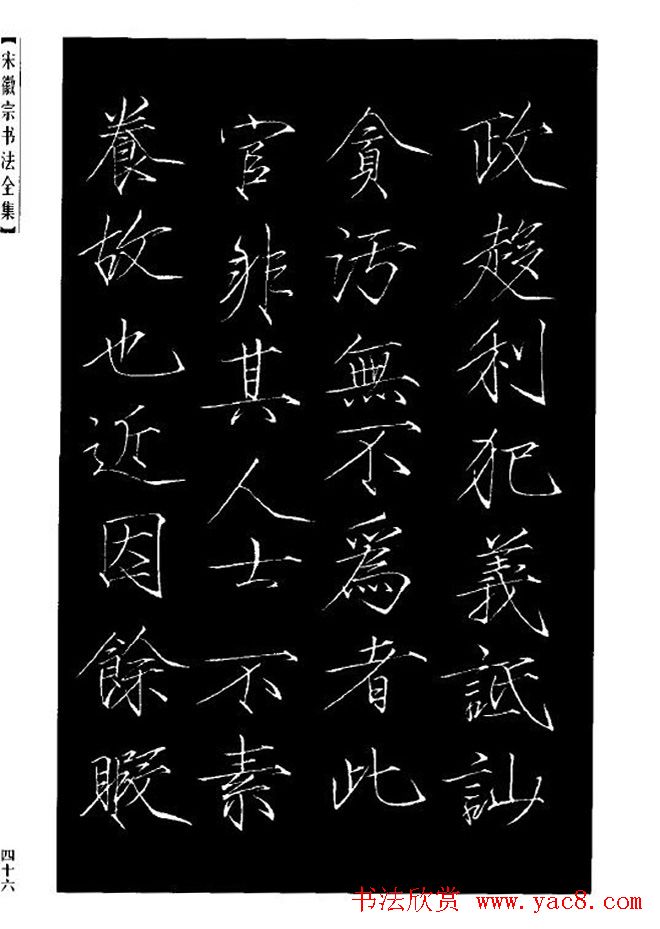 【宋徽宗书法全集】
政趍利犯義詆訕
貪污無不為者此
官非其人士不素
養故也近因餘暇
四十六
书法欣赏 www.yac8.com